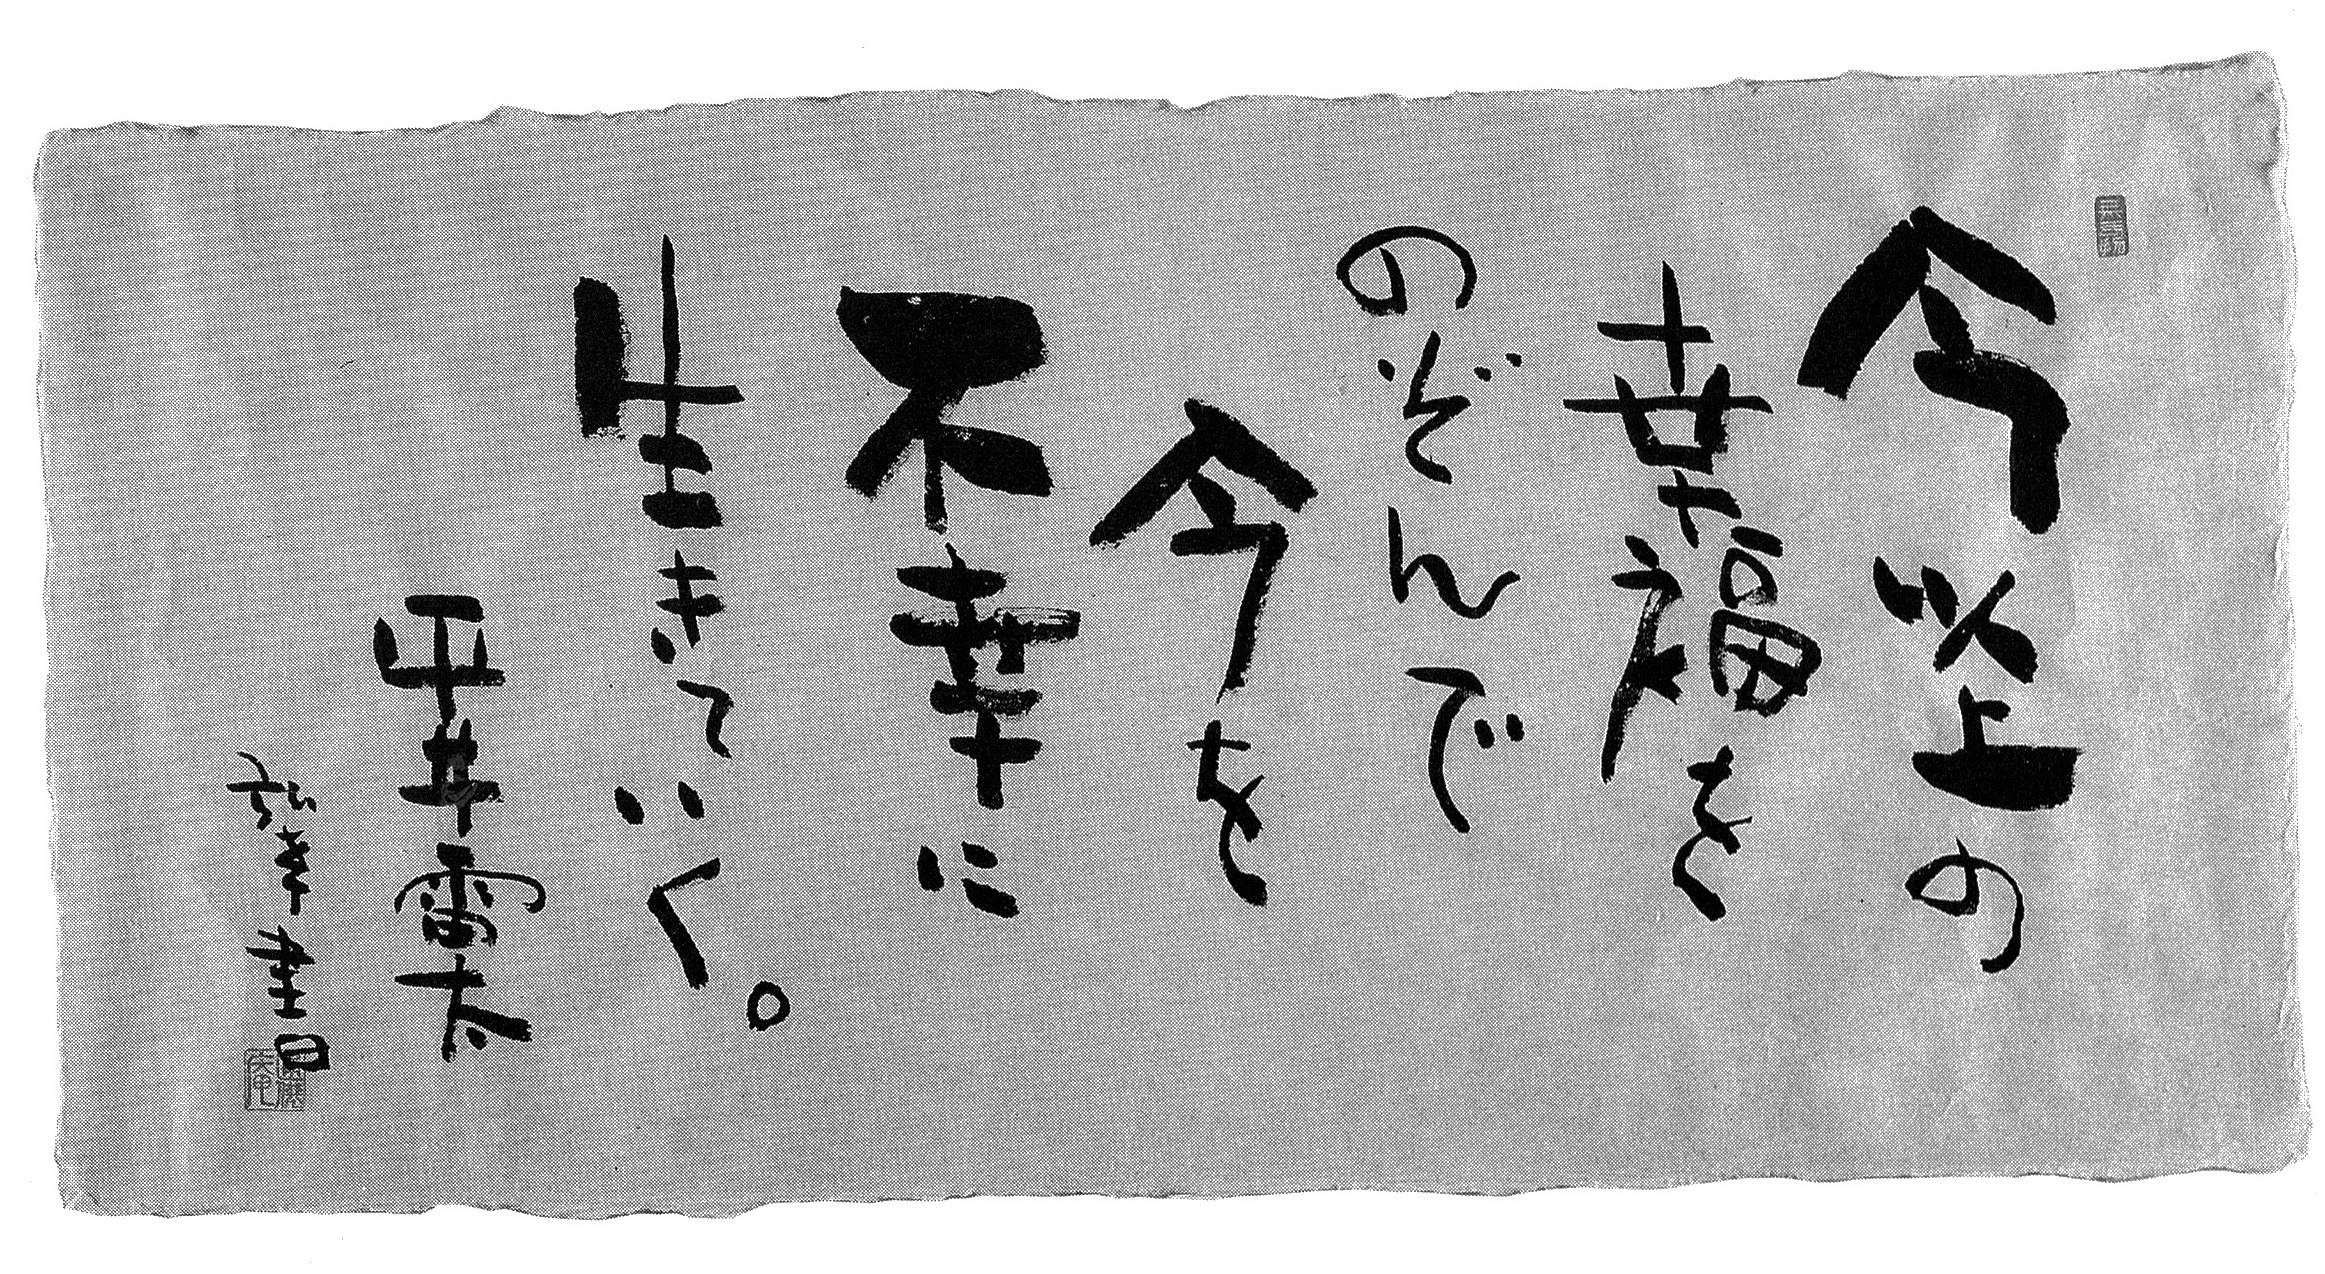 今以上の
幸福を
のぞんで
今を
不幸に
生きていく。
平井雷太
書